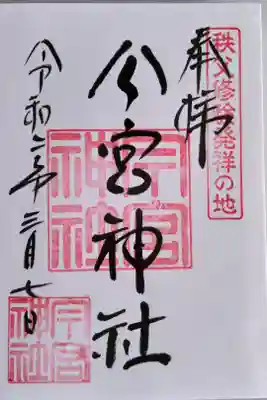 秩父修験発祥の地
奉拝
今宮神社
今宮
神社
令和二年三月七日
今宮
神社